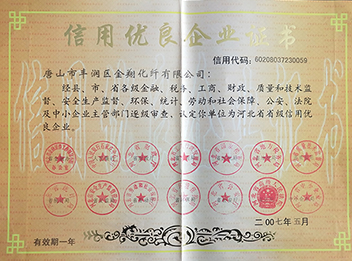 信用优良企业证书
信用代码:60208037230059
唐山市丰润区金翔化纤有限公司:
经县、市、省各级金融、税务、工商、财政、质量和技术监
督、安全生产监督、环保、统计、劳动和社会保障、公安、法院
及中小企业主管部门逐级审查,认定你单位为河北省省级信用优
良企业。
二00七年五月
有效期一年